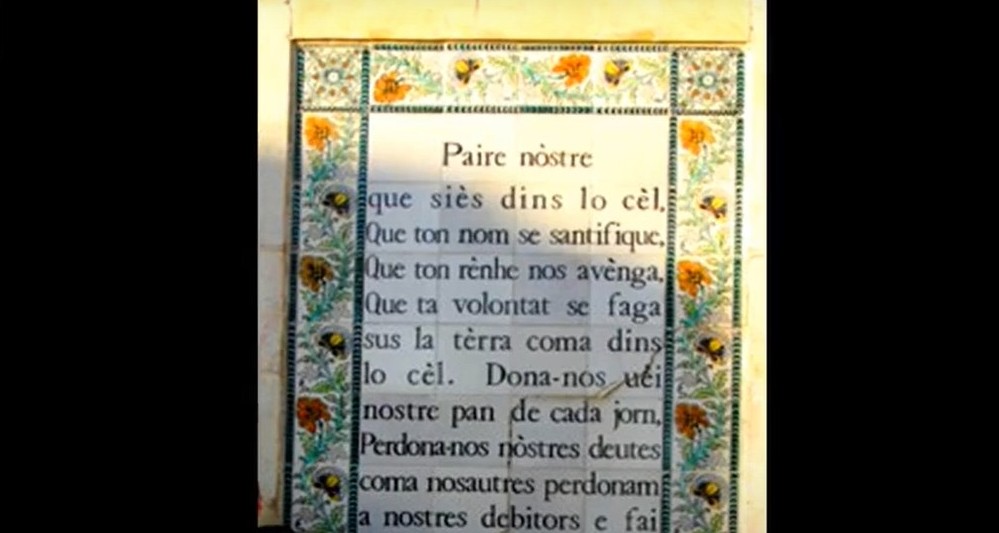 Paire nòstre
que siès dins lo cèl,
Que ton nom se santifique,
Que ton rènhe nos avènga,
Que ta volontat se faga
sus la tèrra coma dins
lo cèl. Dona-nos uéi
nostre pan de cada jorn,
Perdona-nos nòstres deutes
coma nosautres perdonam
a nostres debitors e fai